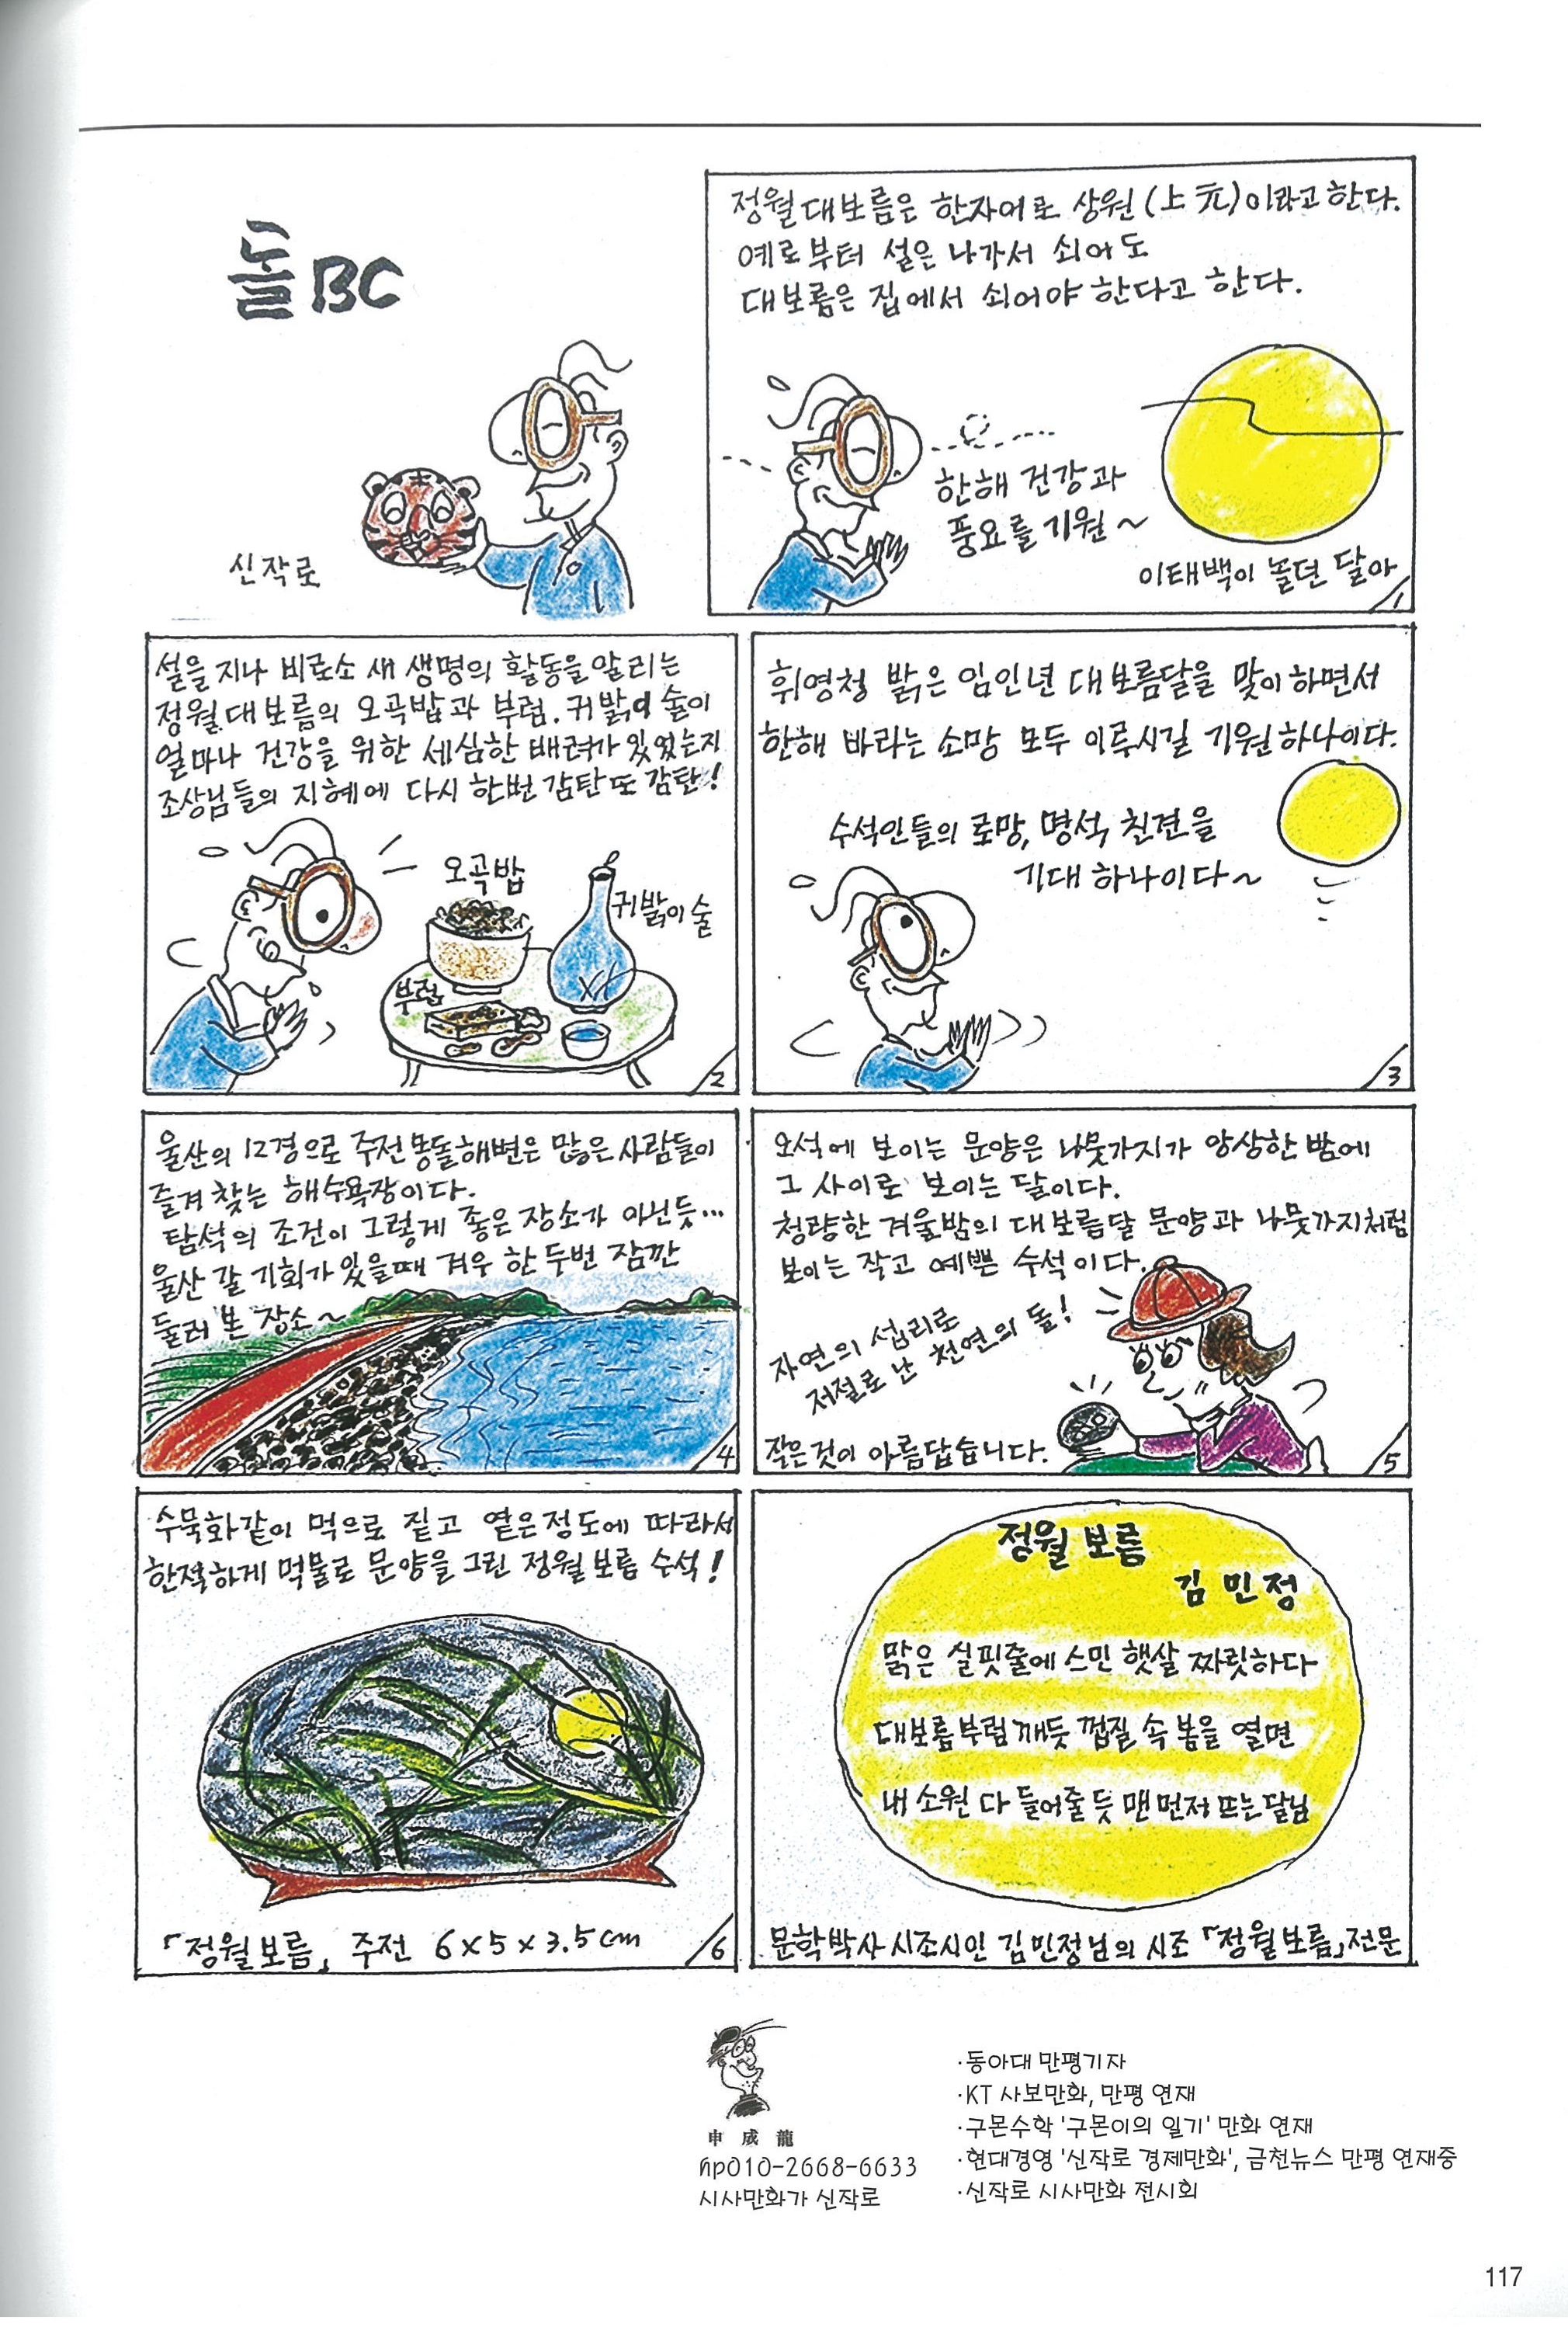 돌BC
신작로
정월대보름은 한자어로 상원(上元)이라고한다.
예로부터 설은 나가서 쇠어도
대보름은 집에서 쇠어야 한다고 한다.
한해 건강과
풍요를 기원~
이태백이 놀던 달아
1
설을 지나 비로소 새 생명의 활동을 알리는
정월대보름의 오곡밥과 부럼. 귀밝이 술이
얼마나 건강을 위한 세심한 배려가 있었는지
조상님들의 지혜에 다시 한번 감탄 또 감탄!
오곡밥
귀밝이 술
부럼
2
휘영청 밝은 임인년 대보름달을 맞이하면서
한해 바라는 소망 모두 이루시길 기원하나이다.
수석인들의 로망, 명석 친견을
기대 하나이다~
3
울산의 12경으로 주전몽돌해변은 많은 사람들이
즐겨 찾는 해수욕장이다.
탐석의 조건이 그렇게 좋은 장소가 아닌듯...
울산 갈 기회가 있을때 겨우 한 두번 잠깐
둘러 본 장소~
4
오석에 보이는 문양은 나뭇가지가 앙상한 밤에
그 사이로 보이는 달이다.
청량한 겨울밤의 대보름달 문양과 나뭇가지처럼
보이는 작고 예쁜 수석이다.
자연의 섭리로
저절로 난 천연의 돌!
작은것이 아름답습니다.
5
수묵화같이 먹으로 짙고 옅은정도에 따라서
한적하게 먹물로 문양을 그린 정월보름 수석!
「정월보름」 주전 6x5x3.5cm
6
정월 보름
김민정
맑은 실핏줄에 스민 햇살 짜릿하다
대보름부럼 깨듯 껍질 속 봄을 열면
내 소원 다 들어줄 듯 맨 먼저 뜨는 달님
문학박사 시조시인 김민정님의 시조 「정월보름」전문
申成龍
hp010-2668-6633
시사만화가 신작로
·동아대 만평기자
·KT 사보만화, 만평 연재
·구몬수학 '구몬이의 일기' 만화 연재
·현대경영 '신작로 경제만화', 금천뉴스 만평 연재중
·신작로 시사만화 전시회
117